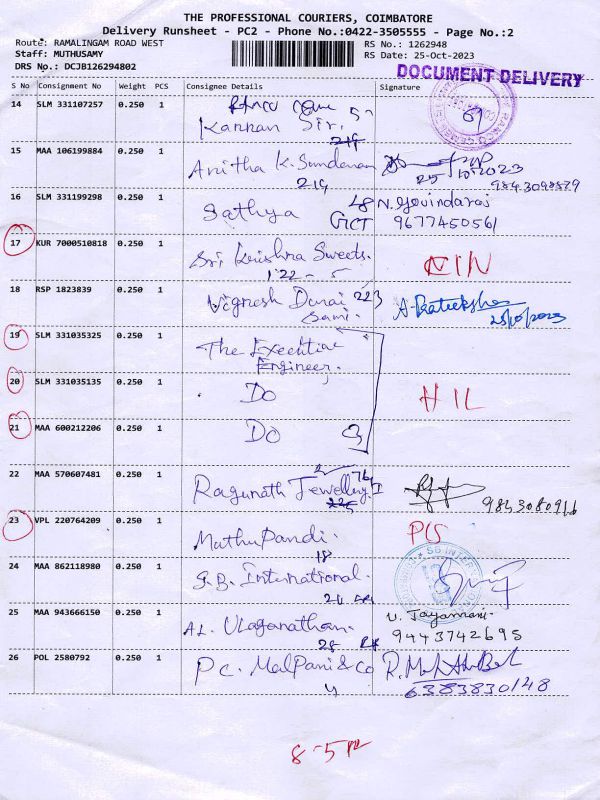 THE PROFESSIONAL COURIERS, COIMBATORE
Delivery Runsheet - PC2 - Phone No.:0422-3505555 - Page No.:2
Route: RAMALINGAM ROAD WEST RS No.: 1262948
Staff: MUTHUSAMY RS Date: 25-Oct-2023
DRS No.: DCJB126294802
DOCUMENT DELIVERY
S No Consignment No Weight PCS Consignee Details Signature
14 SLM 331107257 0.250 1
Kannan Sir.
15 MAA 106199884 0.250 1 Anitha K. Sundaram
219 25/10/2023
9843098579
16 SLM 331199298 0.250 1 Sathya 48 N. Govindaraj
GCT 9677450561
17 KUR 7000510818 0.250 1 Sri Krishna Sweets.
122 - 5 NIN
18 RSP 1823839 0.250 1 Vignesh Durai 223
Sami. 25/10/2023
19 SLM 331035325 0.250 1 The Executive
Engineer.
20 SLM 331035135 0.250 1 Do HIL
21 MAA 600212206 0.250 1 Do 3
22 MAA 570607481 0.250 1 Ragunath Jewellery
23 VPL 220764209 0.250 1 Muthu Pandi.
18
24 MAA 862118980 0.250 1 S.B. International.
25 MAA 943666150 0.250 1 AL. Ulaganathan. V. Jayamani
28 9443742695
26 POL 2580792 0.250 1 P.C. Malpani & Co
4 6383830148
8-5